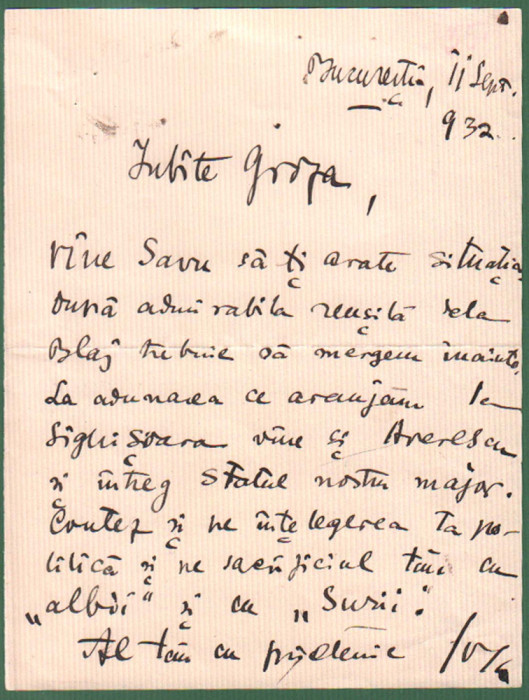 București, 11 Sept.
932.
Iubite Groza,
vine Savu să ți arate situația.
După admirabila reușită dela
Blaj trebuie să mergem înainte.
La adunarea ce aranjăm la
Sighișoara vine și Averescu
și întreg statul nostru major.
Contez și pe înțelegerea ta po-
litică și pe sacrificiul tău cu
„albii" și cu „Surii".
Al tău cu prietenie